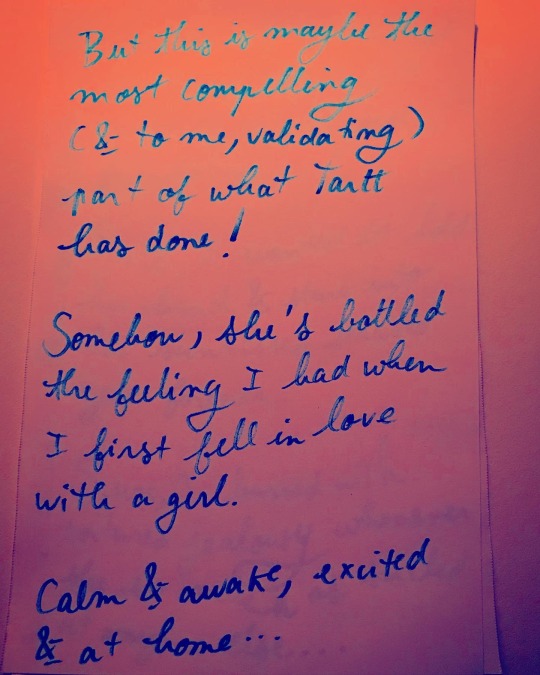 But this is maybe the
most compelling
(& to me, validating)
part of what Tartt
has done!
Somehow, she's bottled
the feeling I had when
I first fell in love
with a girl.
Calm & awake, excited
& at home...